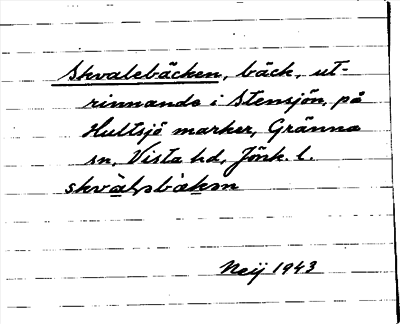 Skvalebäcken, bäck, ut-
rinnande i Stensjön, på
Hultsjö marker, Gränna
sn, Vista hd, Jönk. l.
Neij 1943